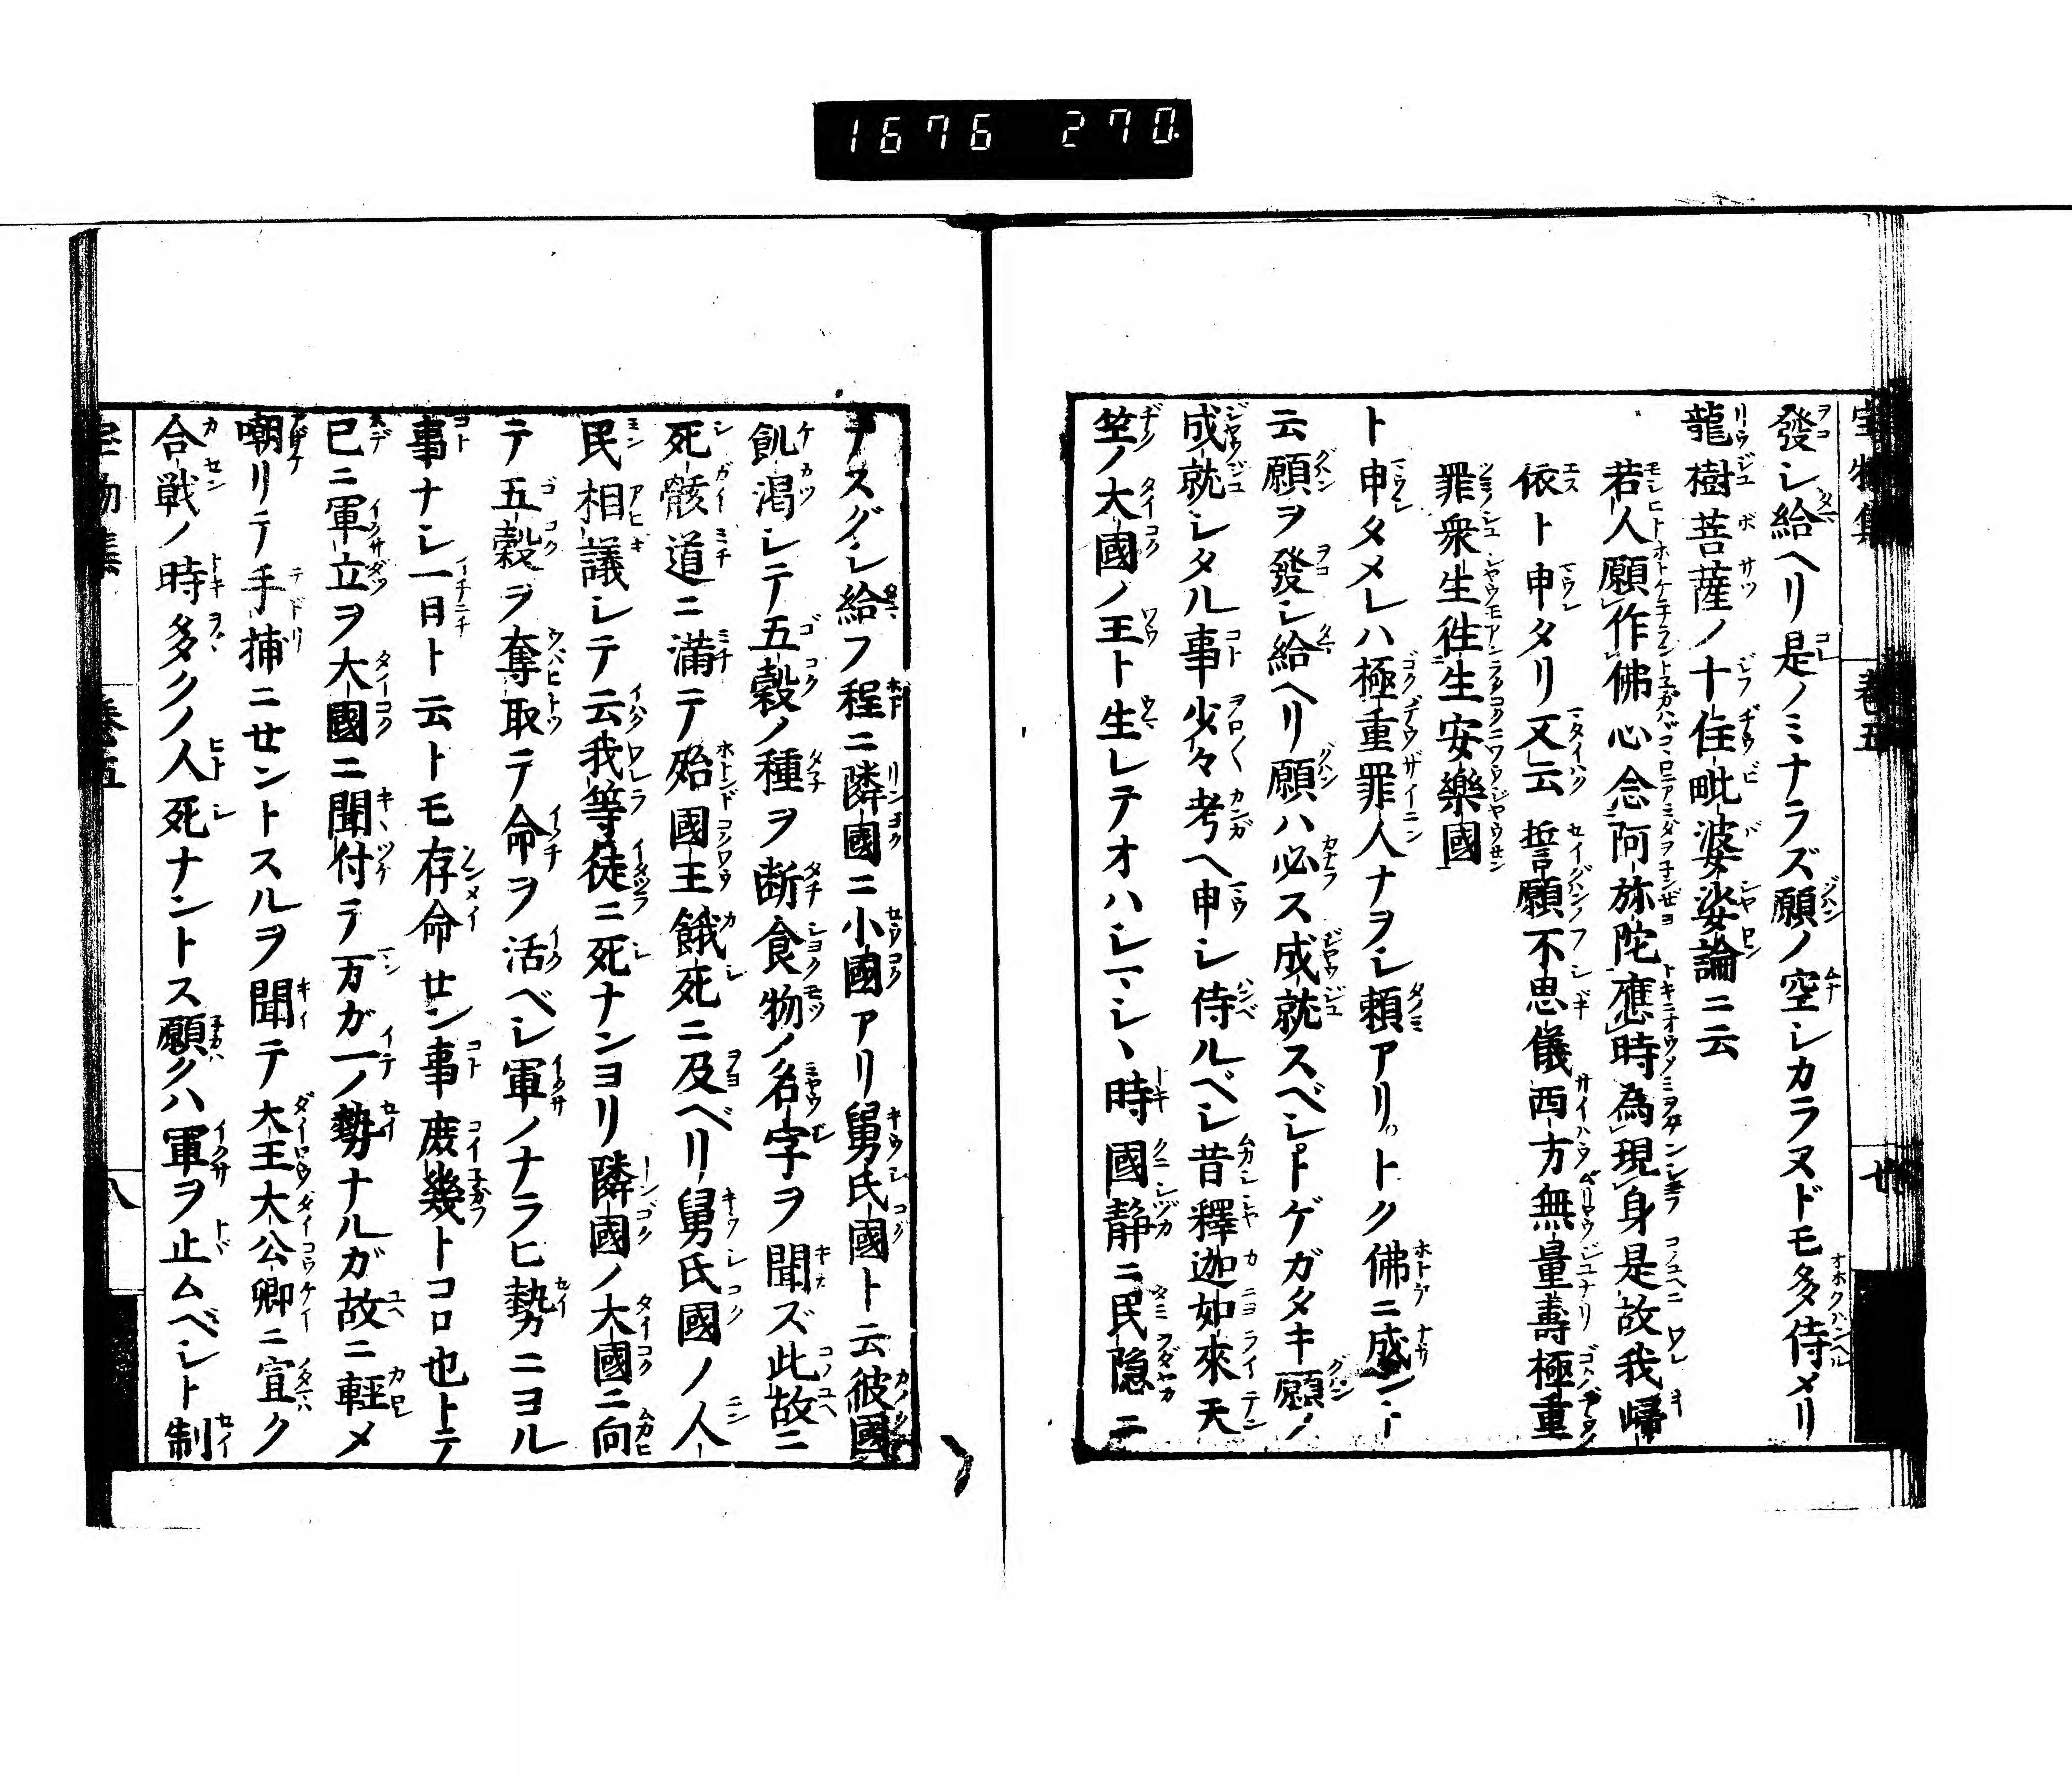 1676 270
發シ給ヘリ是ノミナラズ願ノ空シカラヌドモ多侍メリ
龍樹菩薩ノ十住毗婆娑論ニ云
若人願作佛心念阿弥陀應時為現身是故我歸
依ト申タリ又云誓願不思儀西方無量壽極重
罪衆生徃生安樂國
ト申タメレハ極重罪人ナヲシ頼アリトク佛ニ成
云願ヲ發シ給ヘリ願ハ必ス成就スベシトゲガタキ願ノ
成就シタル事少々考ヘ申シ侍ルベシ昔釋迦如來天
竺ノ大國ノ王ト生レテオハシマシヽ時國静ニ民隠ニ
スグシ給フ程ニ隣國ニ小國アリ舅氏國ト云彼國
飢渇シテ五穀ノ種ヲ断食物ノ名字ヲ聞ズ此故ニ
死骸道ニ満テ殆國王餓死ニ及ベリ舅氏國ノ人
民相議シテ云我等徒ニ死ナンヨリ隣國ノ大國ニ向
テ五穀ヲ奪取テ命ヲ活ベシ軍ノナラヒ勢ニヨル
事ナシ一日ト云トモ存命セン事庶幾トコロ也トテ
已ニ軍立ヲ大國ニ聞付テ万ガ一ノ勢ナルガ故ニ輕メ
嘲リテ手捕ニセントスルヲ聞テ大王大公卿ニ宣ク
合戦ノ時多クノ人死ナントス願クハ軍ヲ止ムベシト制